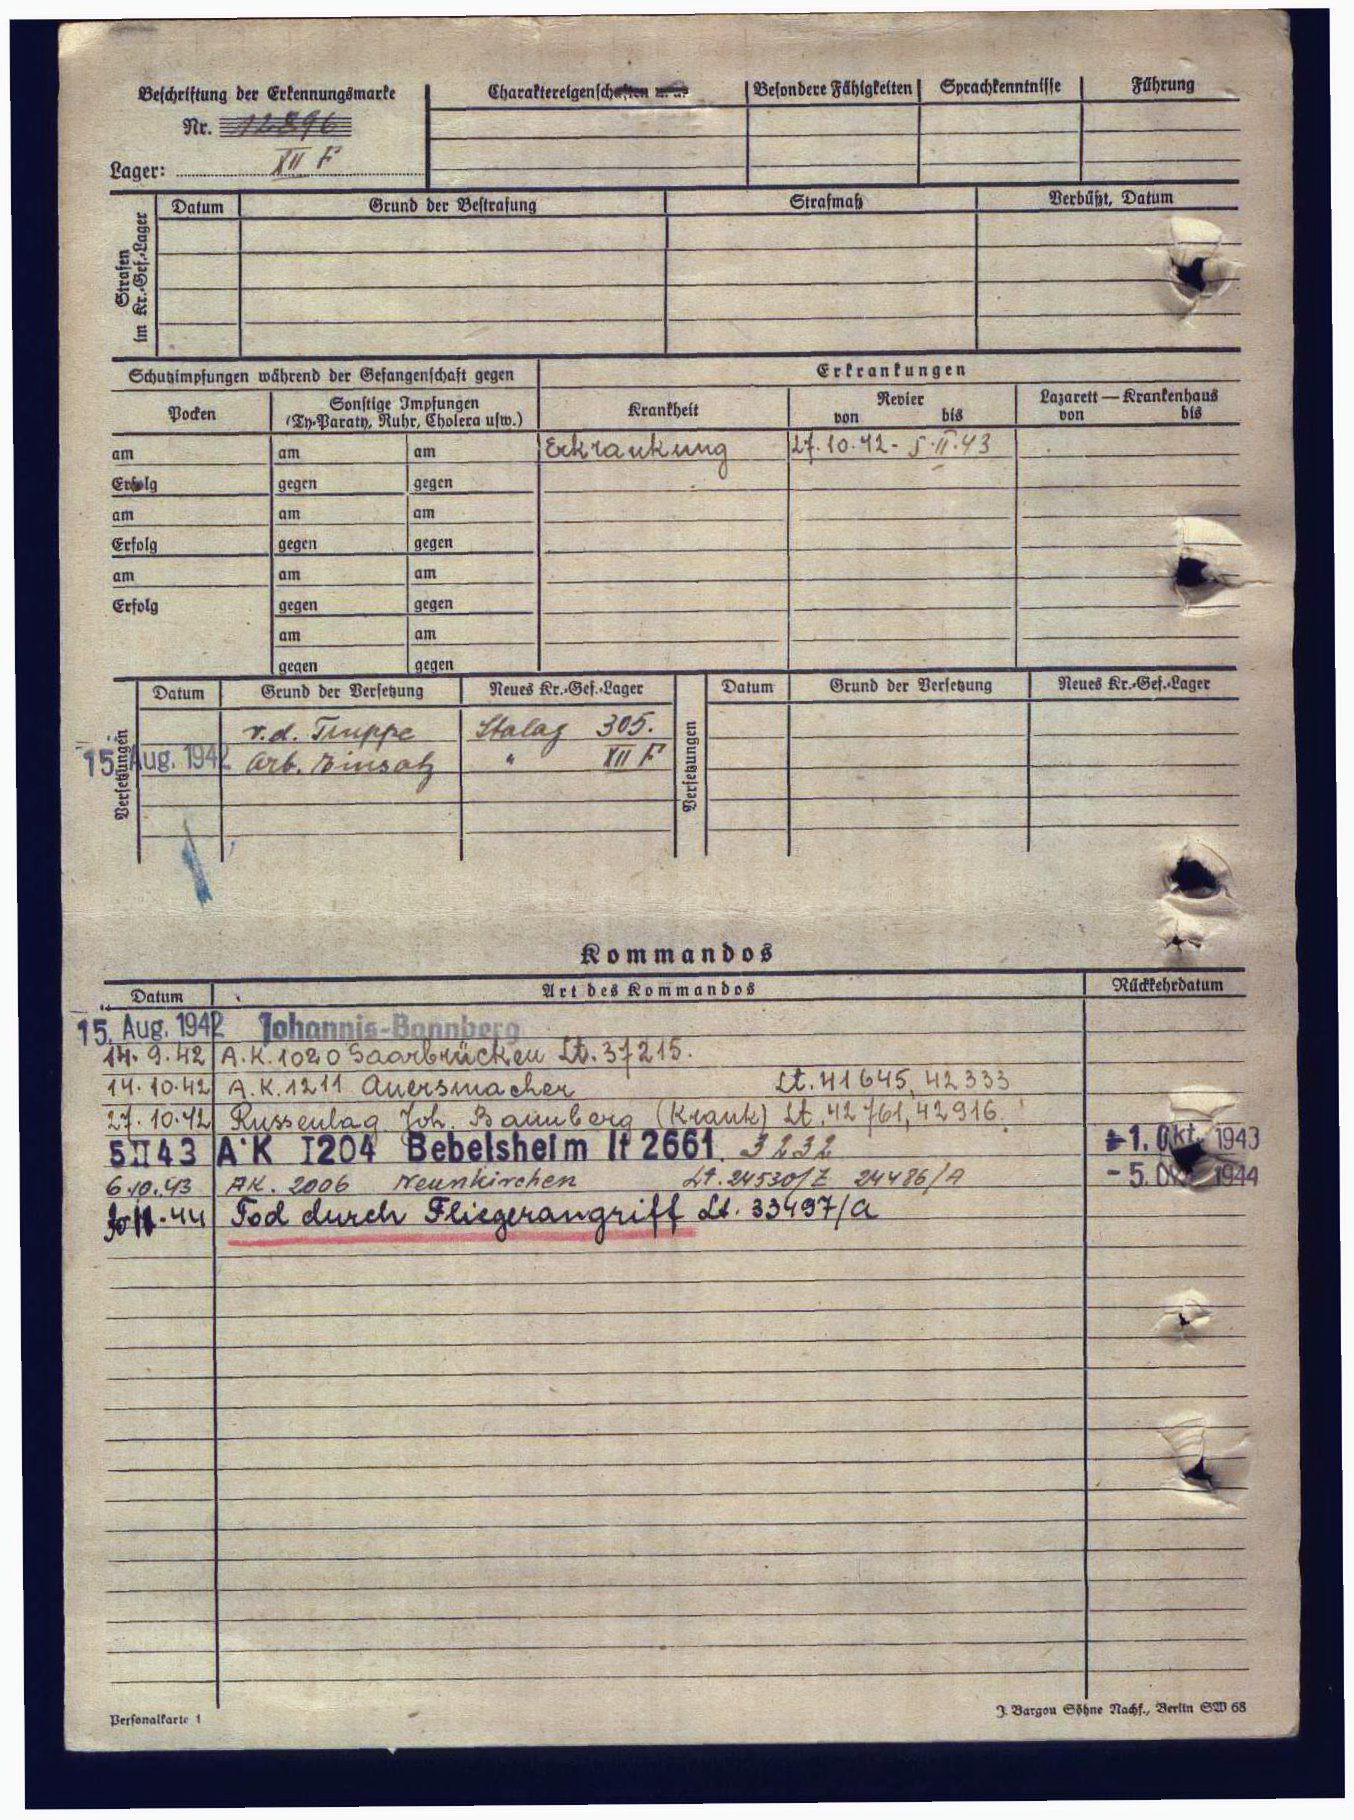 Beschriftung der Erkennungsmarke
Nr. 12896
Lager: XII F
Charaktereigenschaften u. a. Besondere Fähigkeiten Sprachkenntnisse Führung
Strafen im Kr.-Gef.-Lager
Datum Grund der Bestrafung Strafmaß Verbüßt, Datum
Schutzimpfungen während der Gefangenschaft gegen
Erkrankungen
Pocken
Sonstige Impfungen
(Ty-Paraty, Ruhr, Cholera usw.)
Krankheit
Revier
von bis
Lazarett — Krankenhaus
von bis
am am am Erkrankung 27.10.42 - 5.II.43
Erfolg gegen gegen
am am am
Erfolg gegen gegen
am am am
Erfolg gegen gegen
am am
gegen gegen
Versetzungen
Datum Grund der Versetzung Neues Kr.-Gef.-Lager
v.d. Truppe Stalag 305.
15. Aug. 1942 Arb. Einsatz " XII F
Versetzungen
Datum Grund der Versetzung Neues Kr.-Gef.-Lager
Kommandos
Datum Art des Kommandos Rückkehrdatum
15. Aug. 1942 Johannis-Bannberg
14.9.42 A.K. 1020 Saarbrücken Lt. 37215.
14.10.42 A.K. 1211 Auersmacher Lt. 41645, 42333
27.10.42 Russenlag. Joh. Bannberg (Krank) Lt. 42761, 42916.
5 II 43 A.K 1204 Bebelsheim lt 2661. 3232 1. Okt. 1943
6.10.43 AK. 2006 Neunkirchen Lt. 24530/Z 24486/A - 5. Okt. 1944
44 Tod durch Fliegerangriff Lt. 33497/A
Personalkarte 1
J. Bargou Söhne Nachf., Berlin SW 68